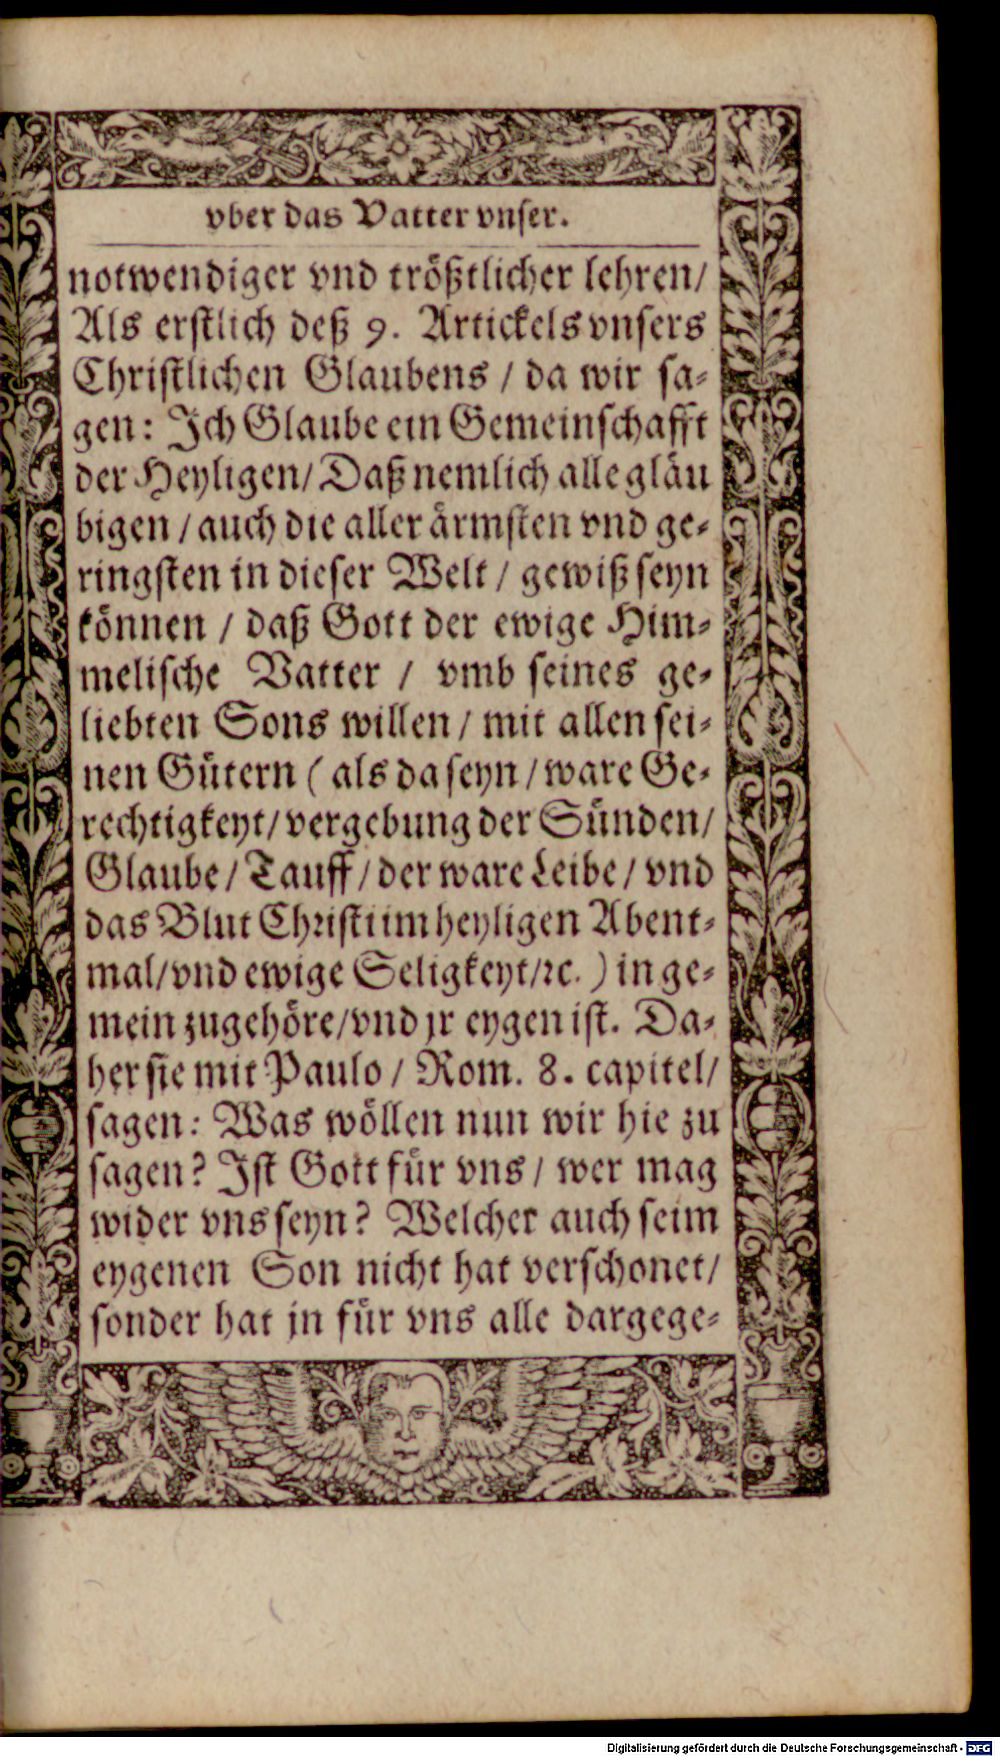 vber das Vatter vnser.
notwendiger vnd trößtlicher lehren/
Als erstlich deß 9. Artickels vnsers
Christlichen Glaubens / da wir sa-
gen: Jch Glaube ein Gemeinschafft
der Heyligen/ Daß nemlich alle gläu
bigen / auch die aller ärmsten vnd ge-
ringsten in dieser Welt / gewiß seyn
können / daß Gott der ewige Him-
melische Vatter / vmb seines ge-
liebten Sons willen / mit allen sei-
nen Gütern ( als da seyn / ware Ge-
rechtigkeyt/ vergebung der Sünden/
Glaube / Tauff / der ware Leibe / vnd
das Blut Christi im heyligen Abent-
mal/ vnd ewige Seligkeyt/ꝛc. ) in ge-
mein zugehöre/vnd jr eygen ist. Da-
her sie mit Paulo / Rom. 8. capitel/
sagen: Was wöllen nun wir hie zu
sagen? Jst Gott für vns / wer mag
wider vns seyn? Welcher auch seim
eygenen Son nicht hat verschonet/
sonder hat jn für vns alle dargege-
Digitalisierung gefördert durch die Deutsche Forschungsgemeinschaft - DFG